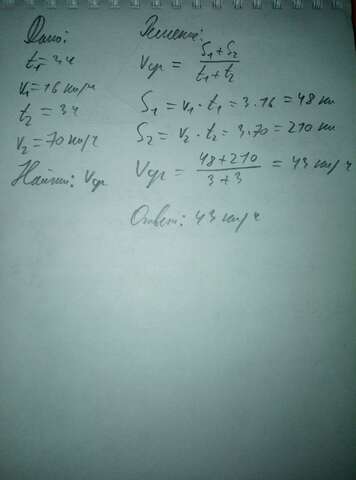 Дано:
t₁=3ч
v₁=16 км/ч
t₂=3ч
v₂=70 км/ч
Найти: vср
Решение:
vср = (S₁+S₂)/(t₁+t₂)
S₁=v₁·t₁=3·16=48 км
S₂=v₂·t₂=3·70=210 км
Vср = (48+210)/(3+3) = 43 км/ч
Ответ: 43 км/ч